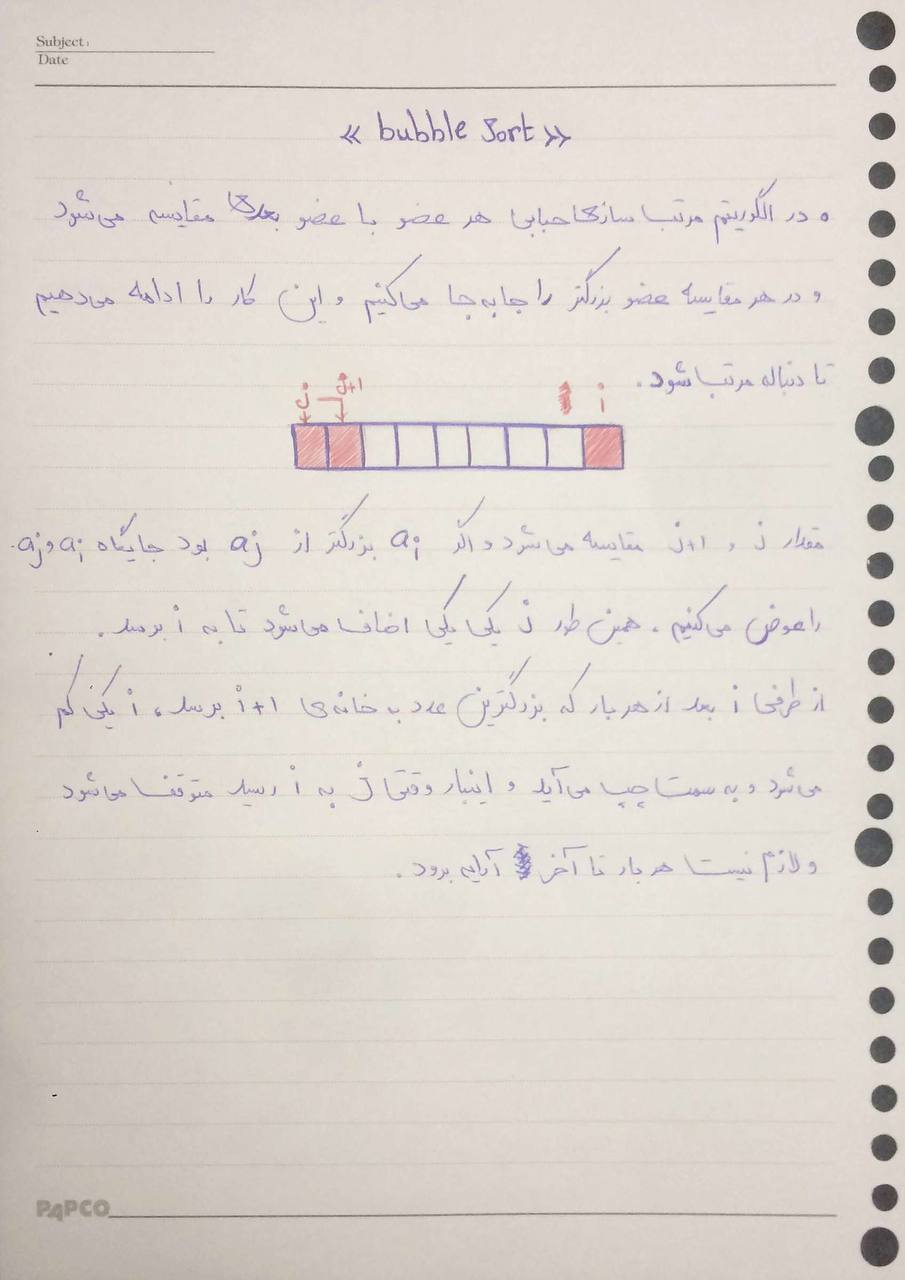 Subject:
Date
« bubble sort »
در الگوریتم مرتب سازی حبابی هر عضو با عضو بعدی مقایسه می‌شود
و در هر مقایسه عضو بزرگتر را جا به جا می‌کنیم و این کار را ادامه می‌دهیم
تا دنباله مرتب شود.
j j+1 i
مقدار j و j+1 مقایسه می‌شود و اگر ai بزرگتر از aj بود جایگاه ai و aj
را عوض می‌کنیم. همین طور j یکی یکی اضافه می‌شود تا به i برسد.
از طرفی i بعد از هر بار که بزرگترین عدد به خانه‌ی i+1 برسد، i یکی کم
می‌شود و به سمت چپ می‌آید و اینبار وقتی j به i رسید متوقف می‌شود
و لازم نیست هر بار تا آخر آرایه برود.
PAPCO